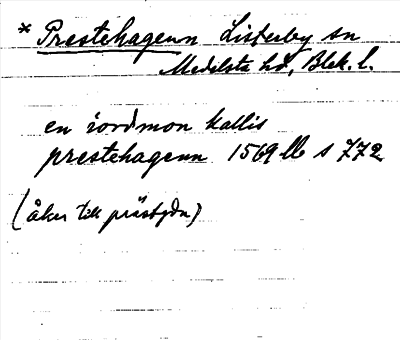 * Prestehagenn Listerby sn
Medelsta hd, Blek. l.
en iordmon kallis
prestehagenn 1569 lb s 772
(åker till prästgdn)